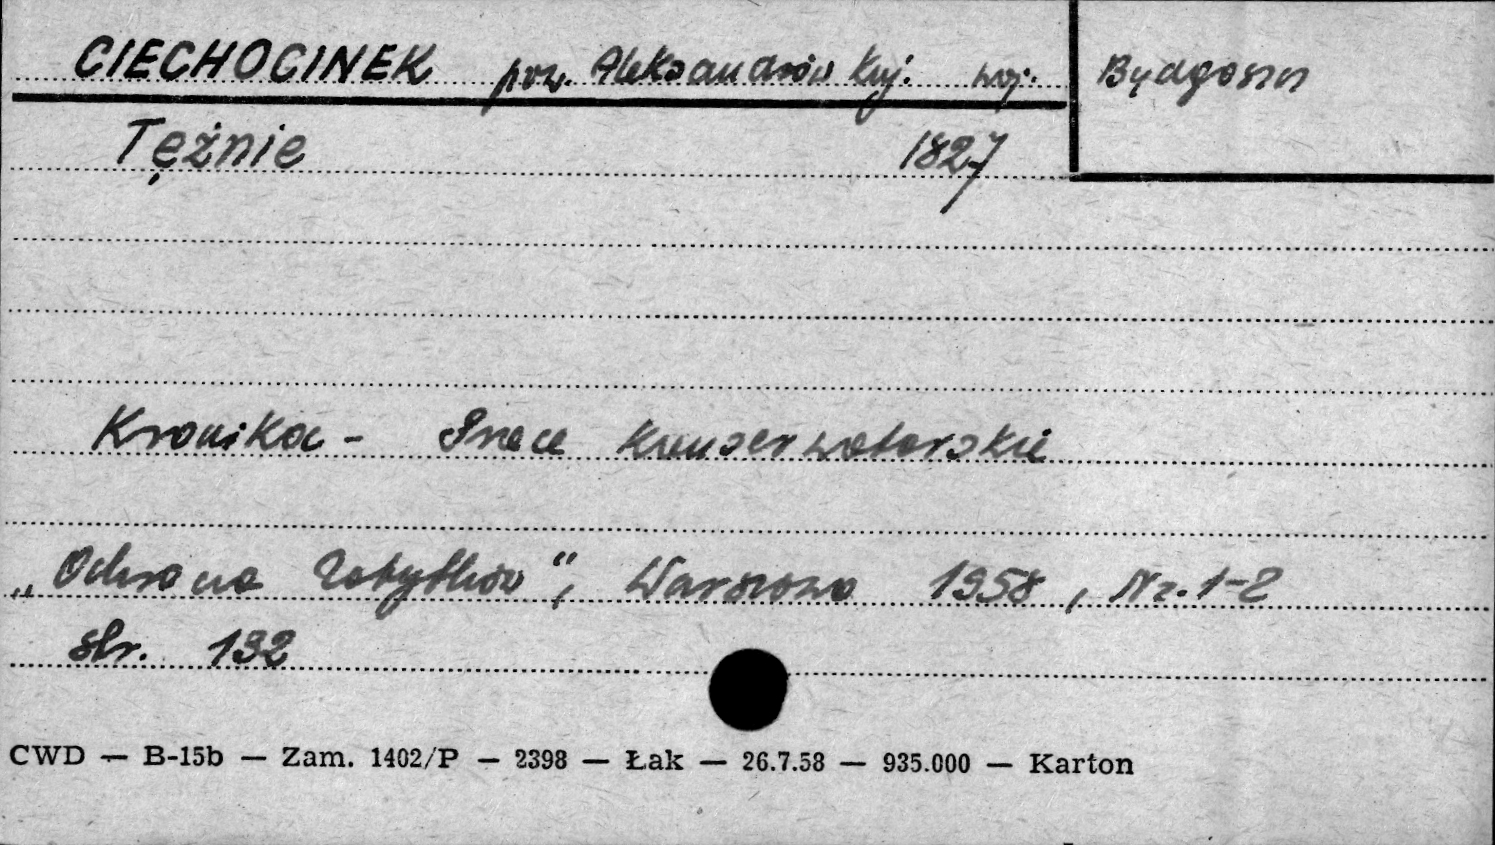 CIECHOCINEK pow. Aleksandrów Kuj. woj. Bydgoszcz
Tężnie 1827
Kronika - Prace konserwatorskie
„Ochrona Zabytków", Warszawa 1958, Nr. 1-2
str. 132
CWD — B-15b — Zam. 1402/P — 2398 — Łak — 26.7.58 — 935.000 — Karton